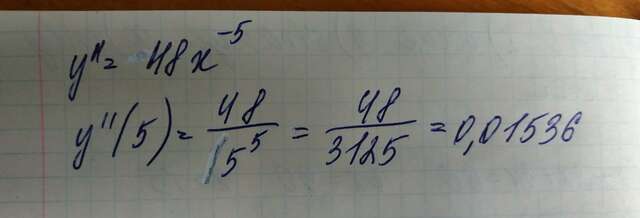 y'' = 48x⁻⁵
y''(5) = 48/5⁵ = 48/3125 = 0,01536